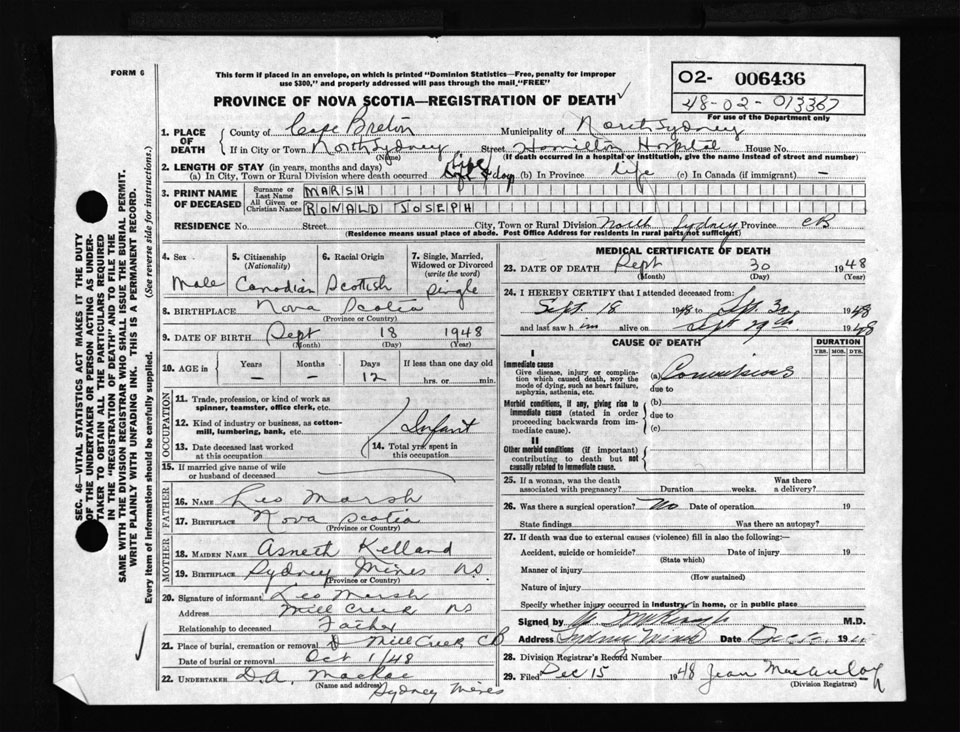 FORM 6
This form if placed in an envelope, on which is printed "Dominion Statistics—Free, penalty for improper
use $300," and properly addressed will pass through the mail "FREE"
02- 006436
48-02-013367
For use of the Department only
PROVINCE OF NOVA SCOTIA—REGISTRATION OF DEATH
1. PLACE OF DEATH
County of Cape Breton Municipality of North Sydney
If in City or Town North Sydney Street Hamilton Hospital House No.
(Name) (If death occurred in a hospital or institution, give the name instead of street and number)
2. LENGTH OF STAY (in years, months and days)
(a) In City, Town or Rural Division where death occurred life day (b) In Province life (c) In Canada (if immigrant) —
3. PRINT NAME OF DECEASED
Surname or Last Name MARSH
All Given or Christian Names RONALD JOSEPH
RESIDENCE No. Street City, Town or Rural Division North Sydney Province CB
(Residence means usual place of abode. Post Office Address for residents in rural parts not sufficient)
4. Sex Male
5. Citizenship (Nationality) Canadian
6. Racial Origin Scottish
7. Single, Married, Widowed or Divorced (write the word) Single
8. BIRTHPLACE Nova Scotia
(Province or Country)
9. DATE OF BIRTH Sept 18 1948
(Month) (Day) (Year)
10. AGE in Years — Months — Days 12 If less than one day old hrs. or min.
OCCUPATION
11. Trade, profession, or kind of work as spinner, teamster, office clerk, etc.
12. Kind of industry or business, as cotton-mill, lumbering, bank, etc. Infant
13. Date deceased last worked at this occupation
14. Total yrs. spent in this occupation
15. If married give name of wife or husband of deceased
FATHER
16. NAME Leo Marsh
17. BIRTHPLACE Nova Scotia
(Province or Country)
MOTHER
18. MAIDEN NAME Asneth Kelland
19. BIRTHPLACE Sydney Mines NS.
(Province or Country)
20. Signature of informant Leo Marsh
Address Mill Creek NS
Relationship to deceased Father
21. Place of burial, cremation or removal Mill Creek CB
Date of burial or removal Oct 1/48
22. UNDERTAKER D.A. MacRae
(Name and address) Sydney Mines
MEDICAL CERTIFICATE OF DEATH
23. DATE OF DEATH Sept 30 1948
(Month) (Day) (Year)
24. I HEREBY CERTIFY that I attended deceased from:
Sept. 18 1948 to Sept. 30 1948
and last saw him alive on Sept 29th 1948
CAUSE OF DEATH
DURATION
YRS. MOS. DYS.
I
Immediate cause
Give disease, injury or complication which caused death, NOT the mode of dying, such as heart failure, asphyxia, asthenia, etc.
(a) Convulsions
due to
Morbid conditions, if any, giving rise to immediate cause (stated in order proceeding backwards from immediate cause).
(b)
due to
(c)
II
Other morbid conditions (if important) contributing to death but not causally related to immediate cause.
25. If a woman, was the death associated with pregnancy? Duration weeks. Was there a delivery?
26. Was there a surgical operation? No Date of operation 19
State findings Was there an autopsy?
27. If death was due to external causes (violence) fill in also the following:
Accident, suicide or homicide? Date of injury 19
(State which)
Manner of injury
(How sustained)
Nature of injury
Specify whether injury occurred in industry, in home, or in public place
Signed by M.D.
Address Sydney Mines Date Dec 19
28. Division Registrar's Record Number
29. Filed Dec 15 1948 Jean MacAulay
(Division Registrar)
SEC. 46—VITAL STATISTICS ACT MAKES IT THE DUTY
OF THE UNDERTAKER OR PERSON ACTING AS UNDER-
TAKER TO OBTAIN ALL THE PARTICULARS REQUIRED
IN THE "REGISTRATION OF DEATH" AND TO FILE THE
SAME WITH THE DIVISION REGISTRAR WHO SHALL ISSUE THE BURIAL PERMIT.
WRITE PLAINLY WITH UNFADING INK. THIS IS A PERMANENT RECORD.
Every item of information should be carefully supplied. (See reverse side for instructions.)